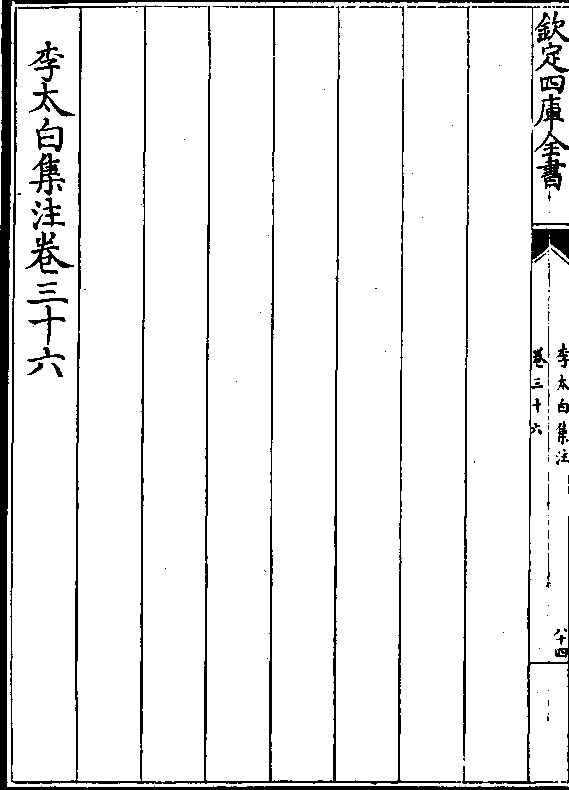 欽定四庫全書
李太白集注
卷三十六
八十四
李太白集注卷三十六